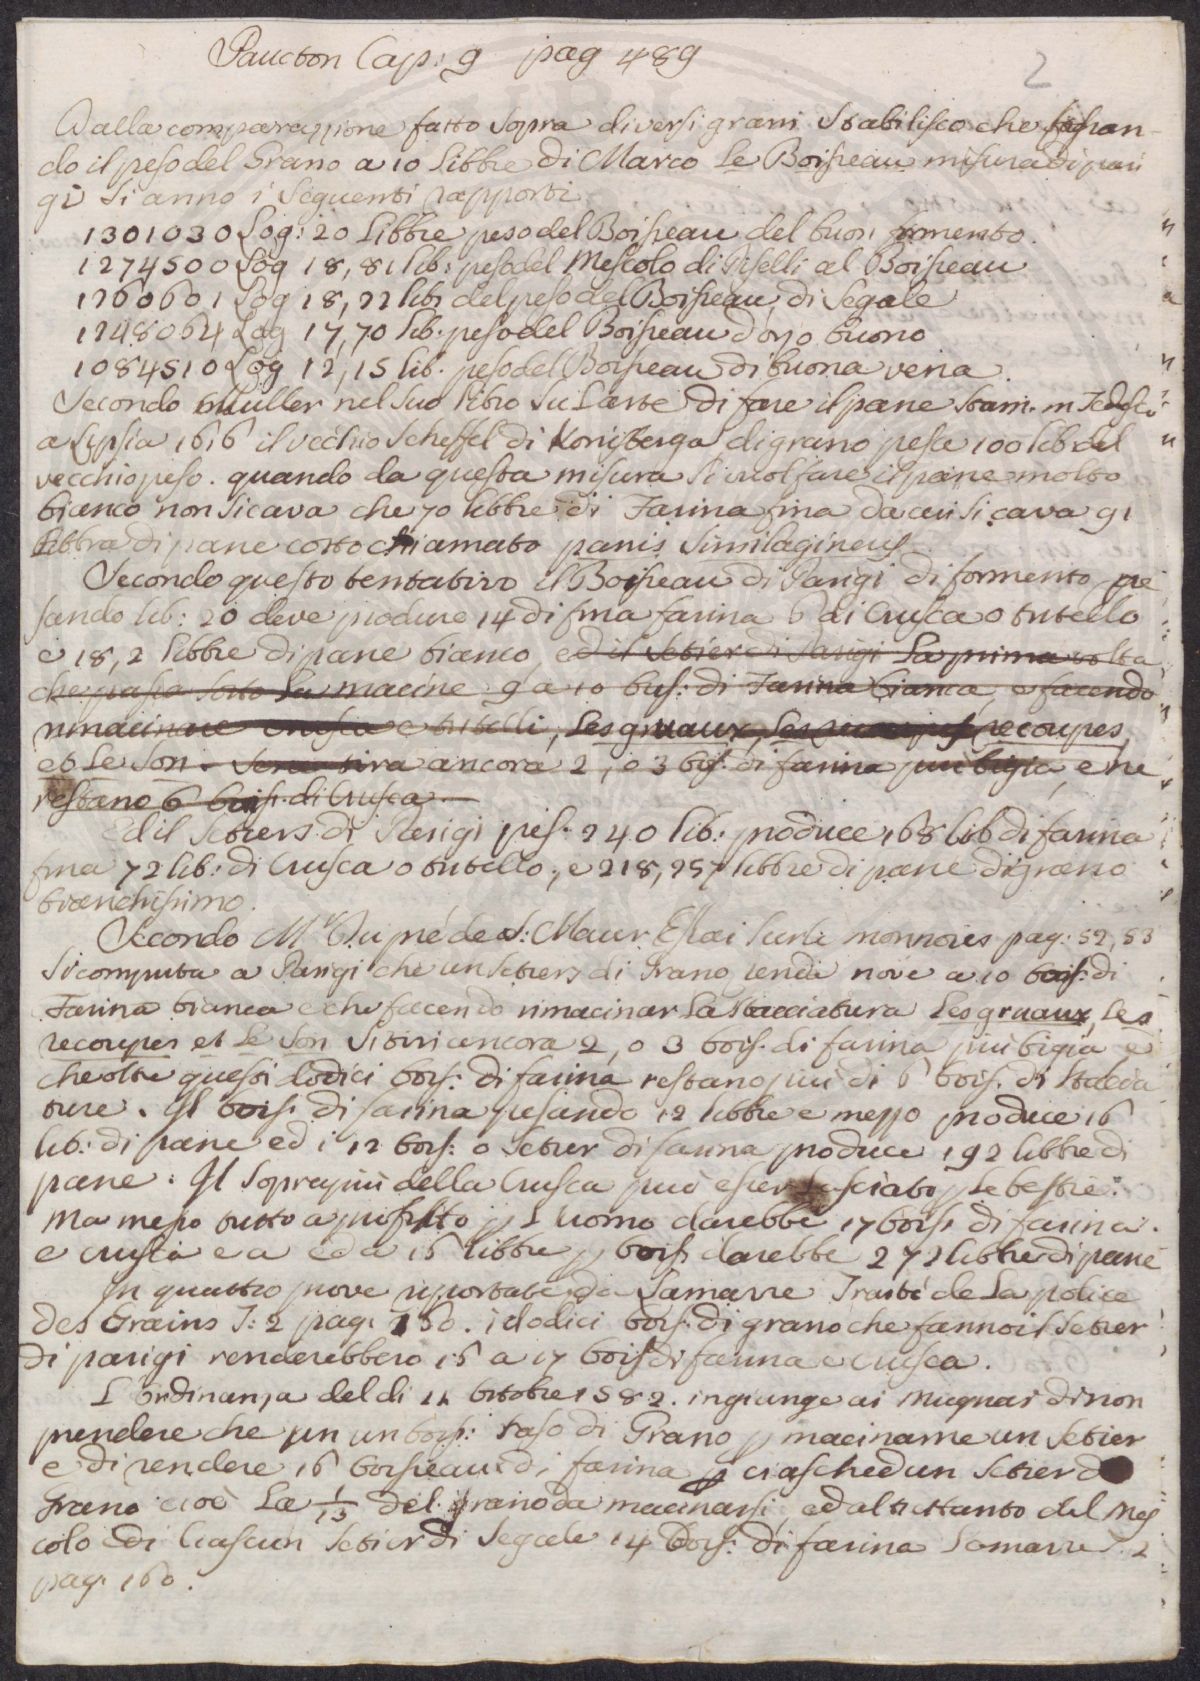 Paucton Cap: 9 pag 489
2
Dalla comparazione fatto sopra diversi grani Stabilisco che
do il peso del Grano a 10 libbre di Marco Le Boisseau misura di pari
gi si anno i seguenti rapporti
1301030 Log: 20 Libbre peso del Boisseau del buon formento.
1274500 Log 18,81 lib: peso del Mescolo di Piselli al Boisseau
1260601 Log 18,22 lib: del peso del Boisseau di Segale
1248064 Log 17,70 lib. peso del Boisseau d'orzo buono
1084510 Log 12,15 lib. peso del Boisseau di buona vena.
Secondo Muller nel suo libro su l'arte di fare il pane stam. in Tedesco
a Lypsia 1616 il vecchio Scheffel di Konisberga di grano pesa 100 lib del
vecchio peso. quando da questa misura si vuol fare il pane molto
bianco non si cava che 70 libbre di Farina fina da cui si cava 91
Libbra di pane cotto chiamato panis similagineus
Secondo questo tentativo il Boisseau di Parigi di formento pe
sando lib: 20 deve produre 14 di fina farina 6 di Crusca o tutello
e 18,2 libbre di pane bianco, ed il Setier di Parigi La prima volta
che passa sotto La macine 9 a 10 bus: di Farina bianca, e facendo
rimacinare crusca e tutelli, Les gruaux, Les recoupes,
et Le Son. Sene tira ancora 2, o 3 bois. di farina più bigia, e ne
restano 6 bois. di Crusca.
Ed il Setiers di Parigi pes. 240 lib: produce 168 lib di farina
fina 72 lib: di Crusca o tutello; e 218,257 libbre di pane di grano
bianchissimo.
Secondo Mr. Dupré de S: Maur Essai sur le monnoies pag: 52, 53
Si computa a Parigi che un Setiers di Grano rende nove a 10 bois: di
Farina bianca e che facendo rimacinar La stacciatura Les gruaux, Les
recoupes et Le Son si tiri ancora 2, o 3 bois. di farina più bigia e
che oltre questi dodici bois: di farina restano più di 6 bois. di staccia
ture. Il bois. di farina pesando 12 libbre e mezzo produce 16
lib: di pane ed i 12 bois: o Setier di farina produce 192 libbre di
pane. Il soprapiù della Crusca può esser Lasciato p Le bestie.
Ma messo tutto a profitto p L'uomo darebbe 17 bois. di farina.
e crusca e a ed a 16 libbre p bois darebbe 272 libbre di pane
In quattro prove riportate da Lamarre Traité de La police
des Grains T: 2 pag. 160. i dodici bois: di grano che fanno il Setier
di parigi renderebbero 16 a 17 bois di farina e Crusca.
L'ordinanza del di 11 ottobre 1582. ingiunge ai Mugnai di non
prendere che un bois: raso di Grano p macinarne un Setier
e di rendere 16 boisseau di farina p ciaschedun Setier d
Grano cioè La 1/13 del grano da macinarsi, ed altrettanto del Mes
colo e di Ciascun Setier di Segale 14 Bois: di farina Lamarre. 2
pag. 160.